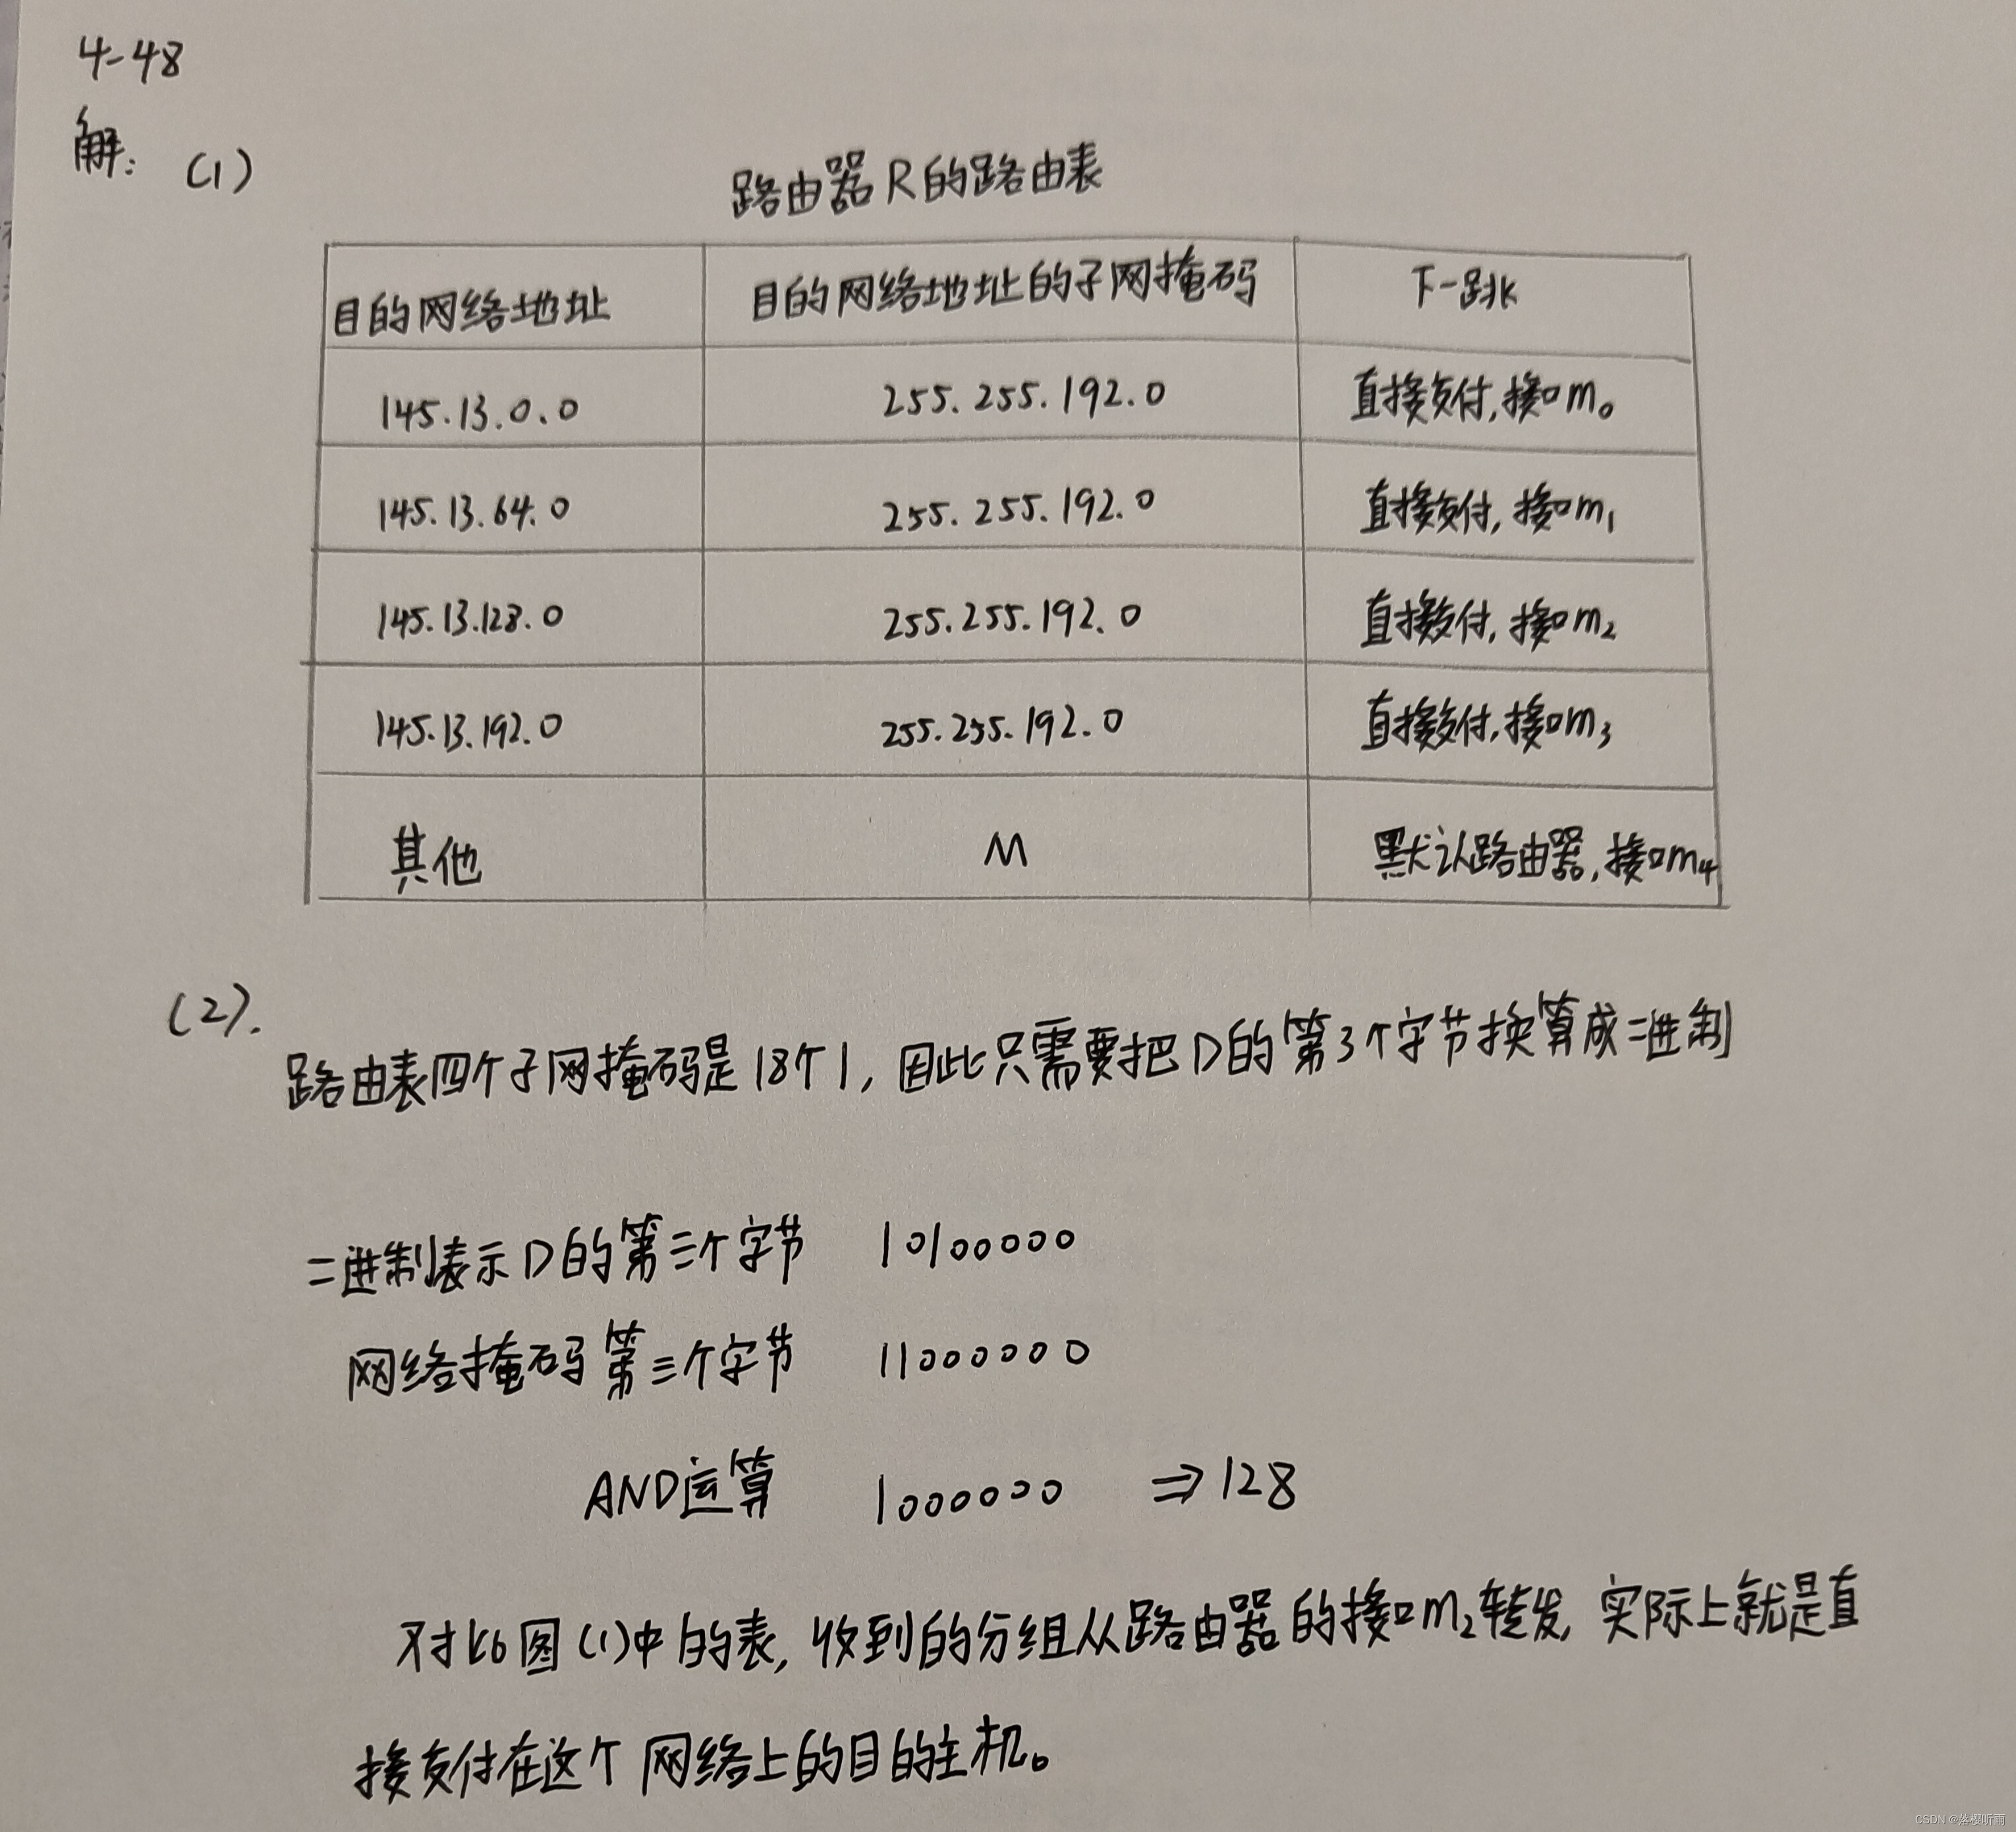 4-48
解: (1)
路由器R的路由表
目的网络地址 目的网络地址的子网掩码 下一跳
145.13.0.0 255.255.192.0 直接交付,接口m₀
145.13.64.0 255.255.192.0 直接交付,接口m₁
145.13.128.0 255.255.192.0 直接交付,接口m₂
145.13.192.0 255.255.192.0 直接交付,接口m₃
其他 M 默认路由器,接口m₄
(2).
路由表四个子网掩码是18个1,因此只需要把D的第3个字节换算成二进制
二进制表示D的第三个字节 10100000
网络掩码第三个字节 11000000
AND运算 1000000 ⇒128
对比图(1)中的表,收到的分组从路由器的接口m₂转发,实际上就是直
接交付在这个网络上的目的主机。
CSDN @落樱听雨